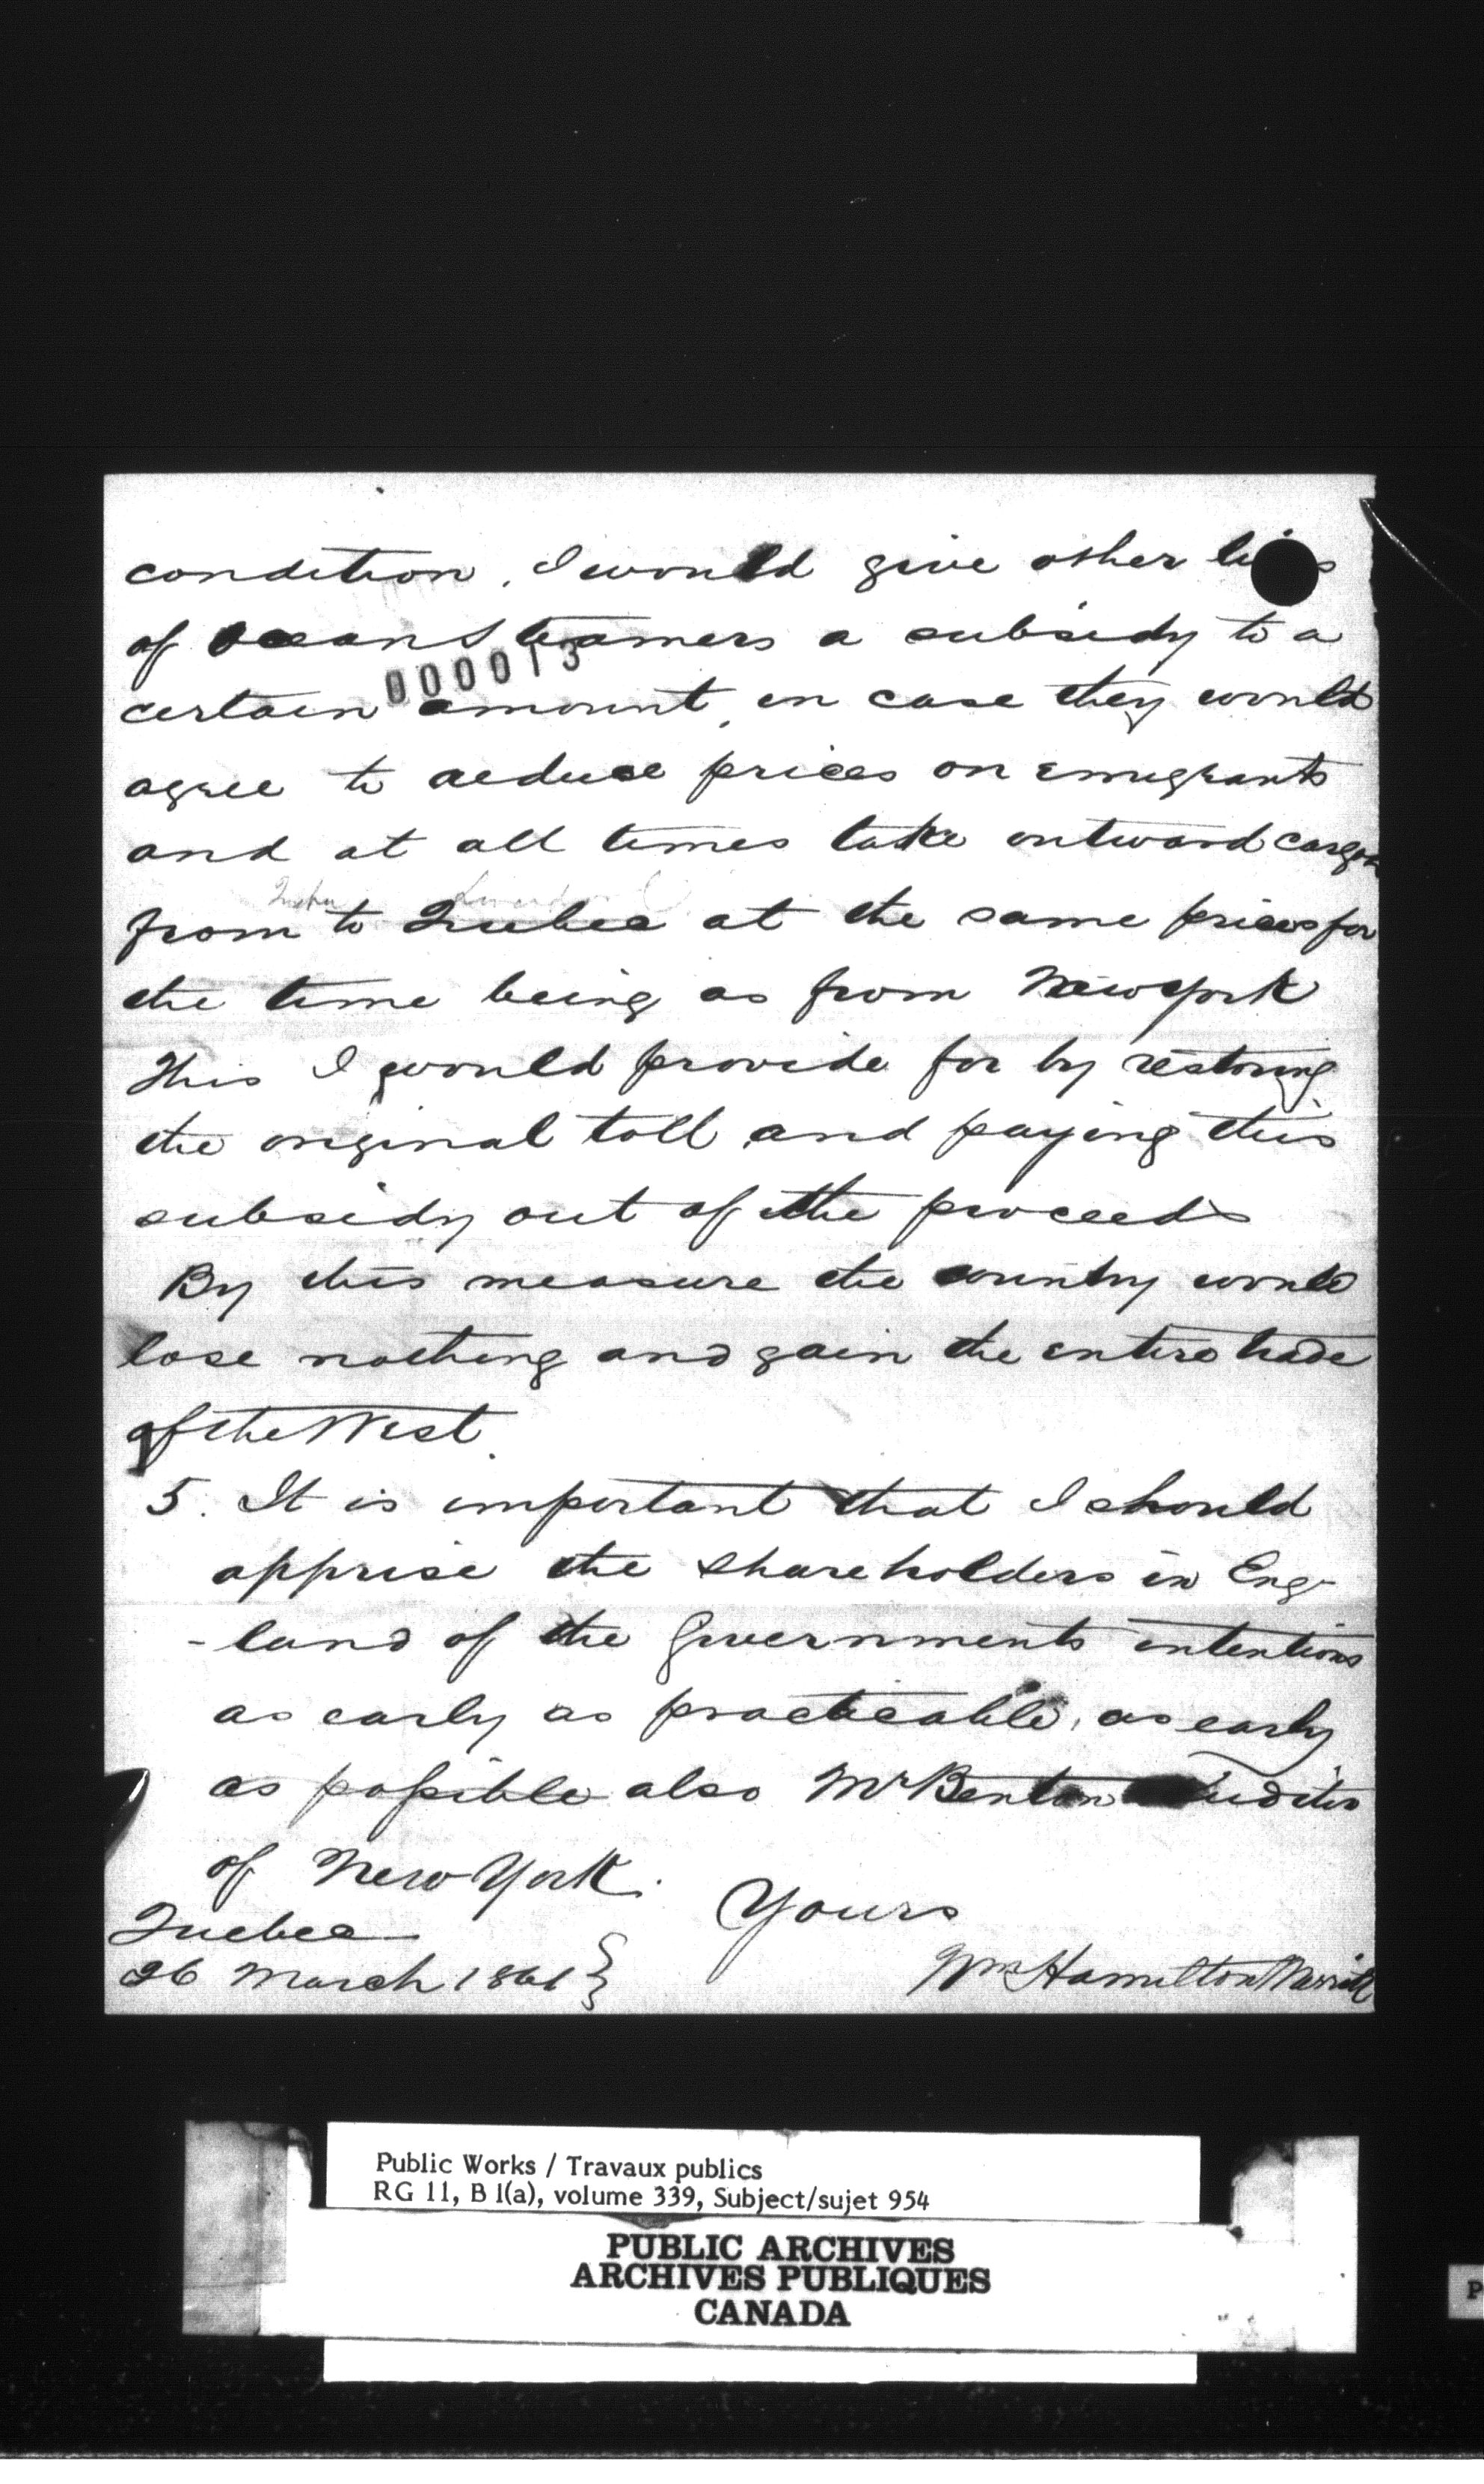 condition. I would give other li s
of Ocean Steamers a subsidy to a
000013
certain amount, in case they would
agree to reduce prices on emigrants
and at all times take outward cargoes
Quebec
from to Quebec at the same prices for
the time being as from New York
This I would provide for by restoring
the original toll and paying this
subsidy out of the proceeds
By this measure the country would
lose nothing and gain the entire trade
of the West.
5. It is important that I should
apprise the Shareholders in Eng-
-land of the Governments intentions
as early as practicable, as early
as possible also Mr Benton Auditor
of New York.
Yours
Quebec
26 March 1861 }
Wm Hamilton Merritt
Public Works / Travaux publics
RG 11, B 1(a), volume 339, Subject/sujet 954
PUBLIC ARCHIVES
ARCHIVES PUBLIQUES
CANADA
P